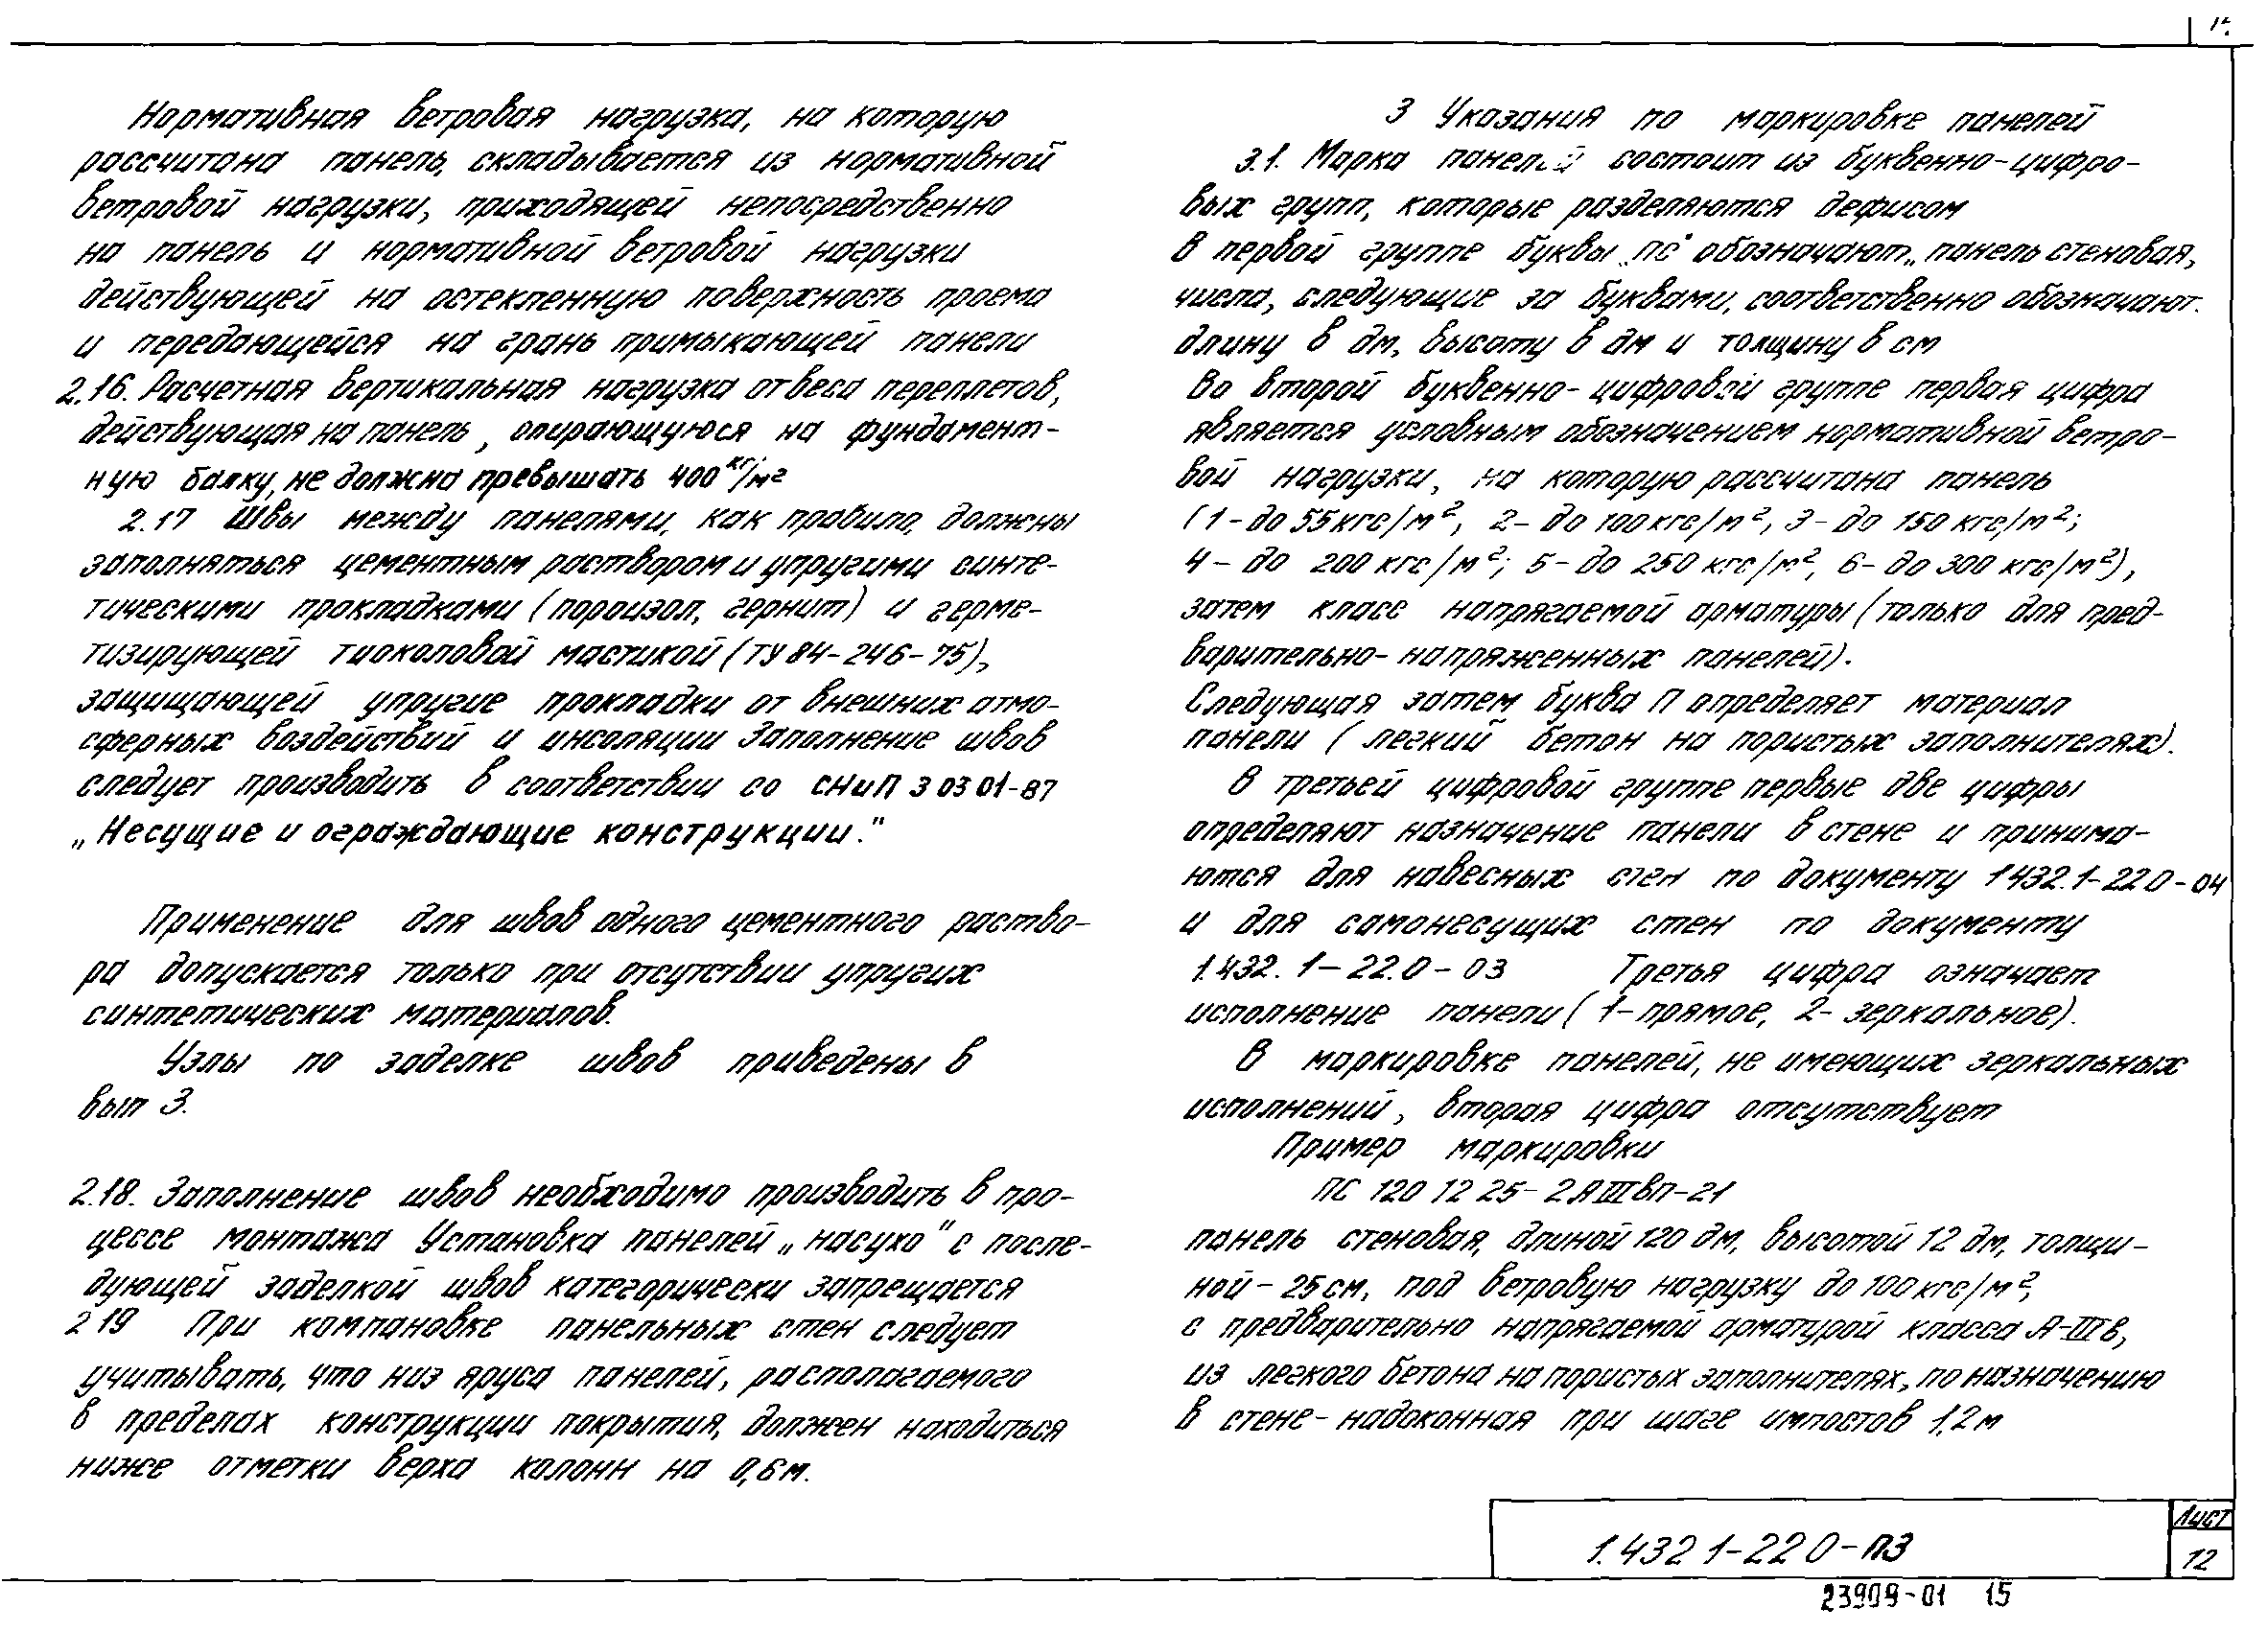 Нормативная ветровая нагрузка, на которую
рассчитана панель, складывается из нормативной
ветровой нагрузки, приходящей непосредственно
на панель и нормативной ветровой нагрузки
действующей на остекленную поверхность проема
и передающейся на грань примыкающей панели
2.16. Расчетная вертикальная нагрузка от веса переплетов,
действующая на панель, опирающуюся на фундамент-
ную балку, не должна превышать 400 кг/м2
2.17 Швы между панелями, как правило, должны
заполняться цементным раствором и упругими синте-
тическими прокладками (пороизол, гернит) и герме-
тизирующей тиоколовой мастикой (ТУ 84-246-75),
защищающей упругие прокладки от внешних атмо-
сферных воздействий и инсоляции Заполнение швов
следует производить в соответствии со СНиП 3 03 01-87
„Несущие и ограждающие конструкции."
Применение для швов одного цементного раство-
ра допускается только при отсутствии упругих
синтетических материалов.
Узлы по заделке швов приведены в
вып 3.
2.18. Заполнение швов необходимо производить в про-
цессе монтажа Установка панелей „насухо" с после-
дующей заделкой швов категорически запрещается
2 19 При компановке панельных стен следует
учитывать, что низ яруса панелей, располагаемого
в пределах конструкции покрытия, должен находиться
ниже отметки верха колонн на 0,6 м.
3 Указания по маркировке панелей
3.1. Марка панелей состоит из буквенно-цифро-
вых групп, которые разделяются дефисом
В первой группе буквы „ПС" обозначают „панель стеновая,
числа, следующие за буквами, соответственно обозначают.
длину в дм, высоту в дм и толщину в см
Во второй буквенно-цифровой группе первая цифра
является условным обозначением нормативной ветро-
вой нагрузки, на которую рассчитана панель
(1-до 55 кгс/м², 2- до 100 кгс/м², 3- до 150 кгс/м²;
4 - до 200 кгс/м²; 5- до 250 кгс/м², 6- до 300 кгс/м²),
затем класс напрягаемой арматуры (только для пред-
варительно-напряженных панелей).
Следующая затем буква П определяет материал
панели (легкий бетон на пористых заполнителях).
В третьей цифровой группе первые две цифры
определяют назначение панели в стене и принима-
ются для навесных стен по документу 1 432.1-22 0-04
и для самонесущих стен по документу
1.432. 1-22.0-03 Третья цифра означает
исполнение панели (1-прямое, 2- зеркальное).
В маркировке панелей, не имеющих зеркальных
исполнений, вторая цифра отсутствует
Пример маркировки
ПС 120 12 25- 2 АIIIвП-21
панель стеновая, длиной 120 дм, высотой 12 дм, толщи-
ной - 25 см, под ветровую нагрузку до 100 кгс/м²,
с предварительно напрягаемой арматурой класса А-IIIв,
из легкого бетона на пористых заполнителях, по назначению
в стене- надоконная при шаге импостов 1,2 м
1.432 1-22 0-ПЗ
Лист
12
23909-01 15